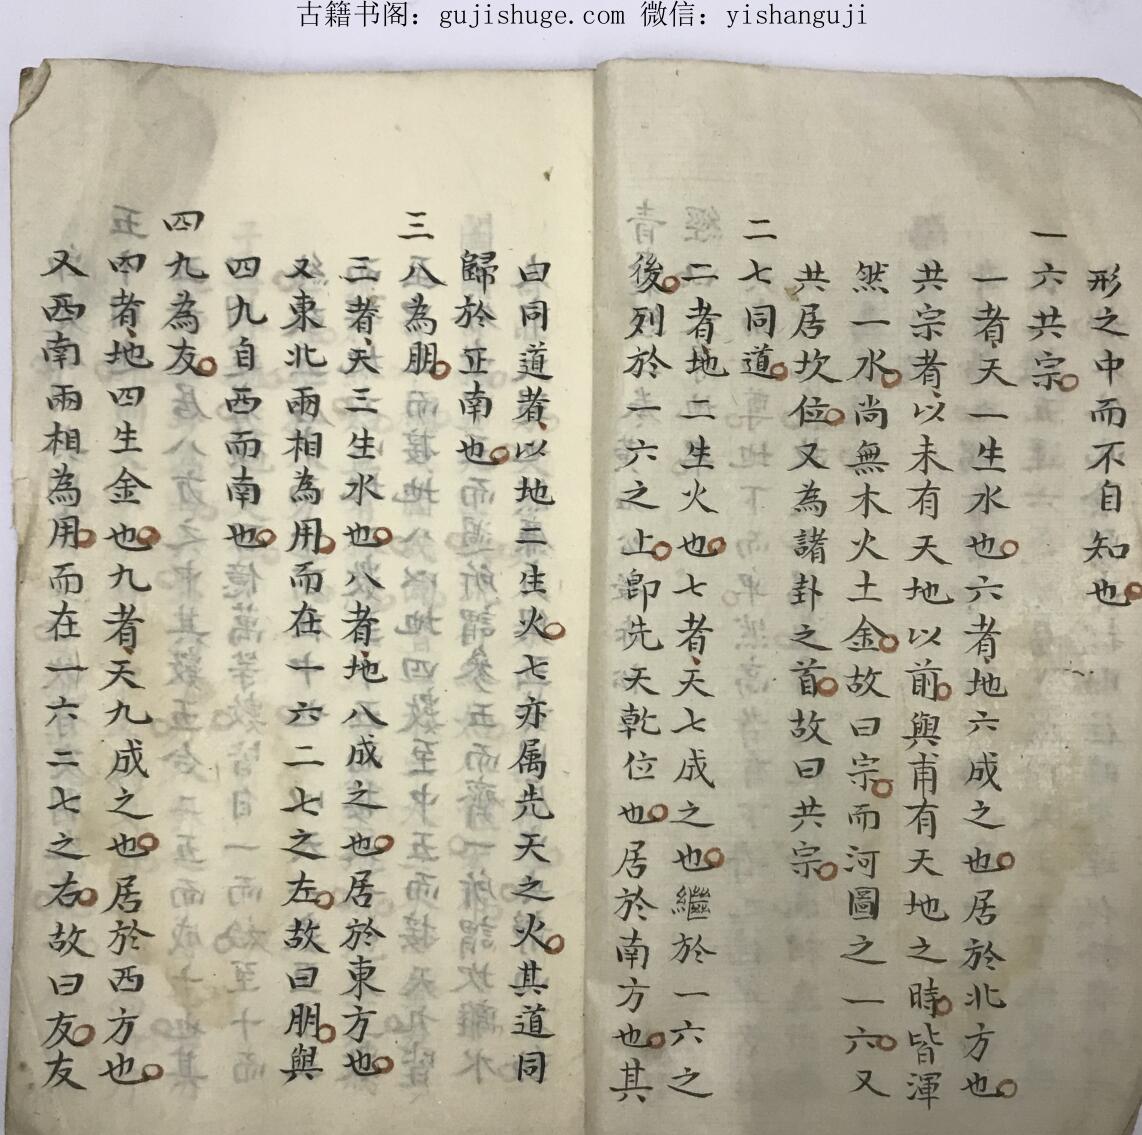 古籍书阁：gujishuge.com 微信：yishanguji
形之中而不自知也
一六共宗
一者天一生水也六者地六成之也居於北方也
共宗者以未有天地以前與甫有天地之時皆渾
然一水尚無木火土金故曰宗而河圖之一六又
共居坎位又為諸卦之首故曰共宗
二七同道
二者地二生火也七者天七成之也繼於一六之
後列於一六之上即先天乾位也居於南方也其
曰同道者以地二生火七亦属先天之火其道同
歸於正南也
三八為朋
三者天三生水也八者地八成之也居於東方也
又東北兩相為用而在十六二七之左故曰朋與
四九自西而南也
四九為友
四者地四生金也九者天九成之也居於西方也
又西南兩相為用而在一六二七之右故曰友友